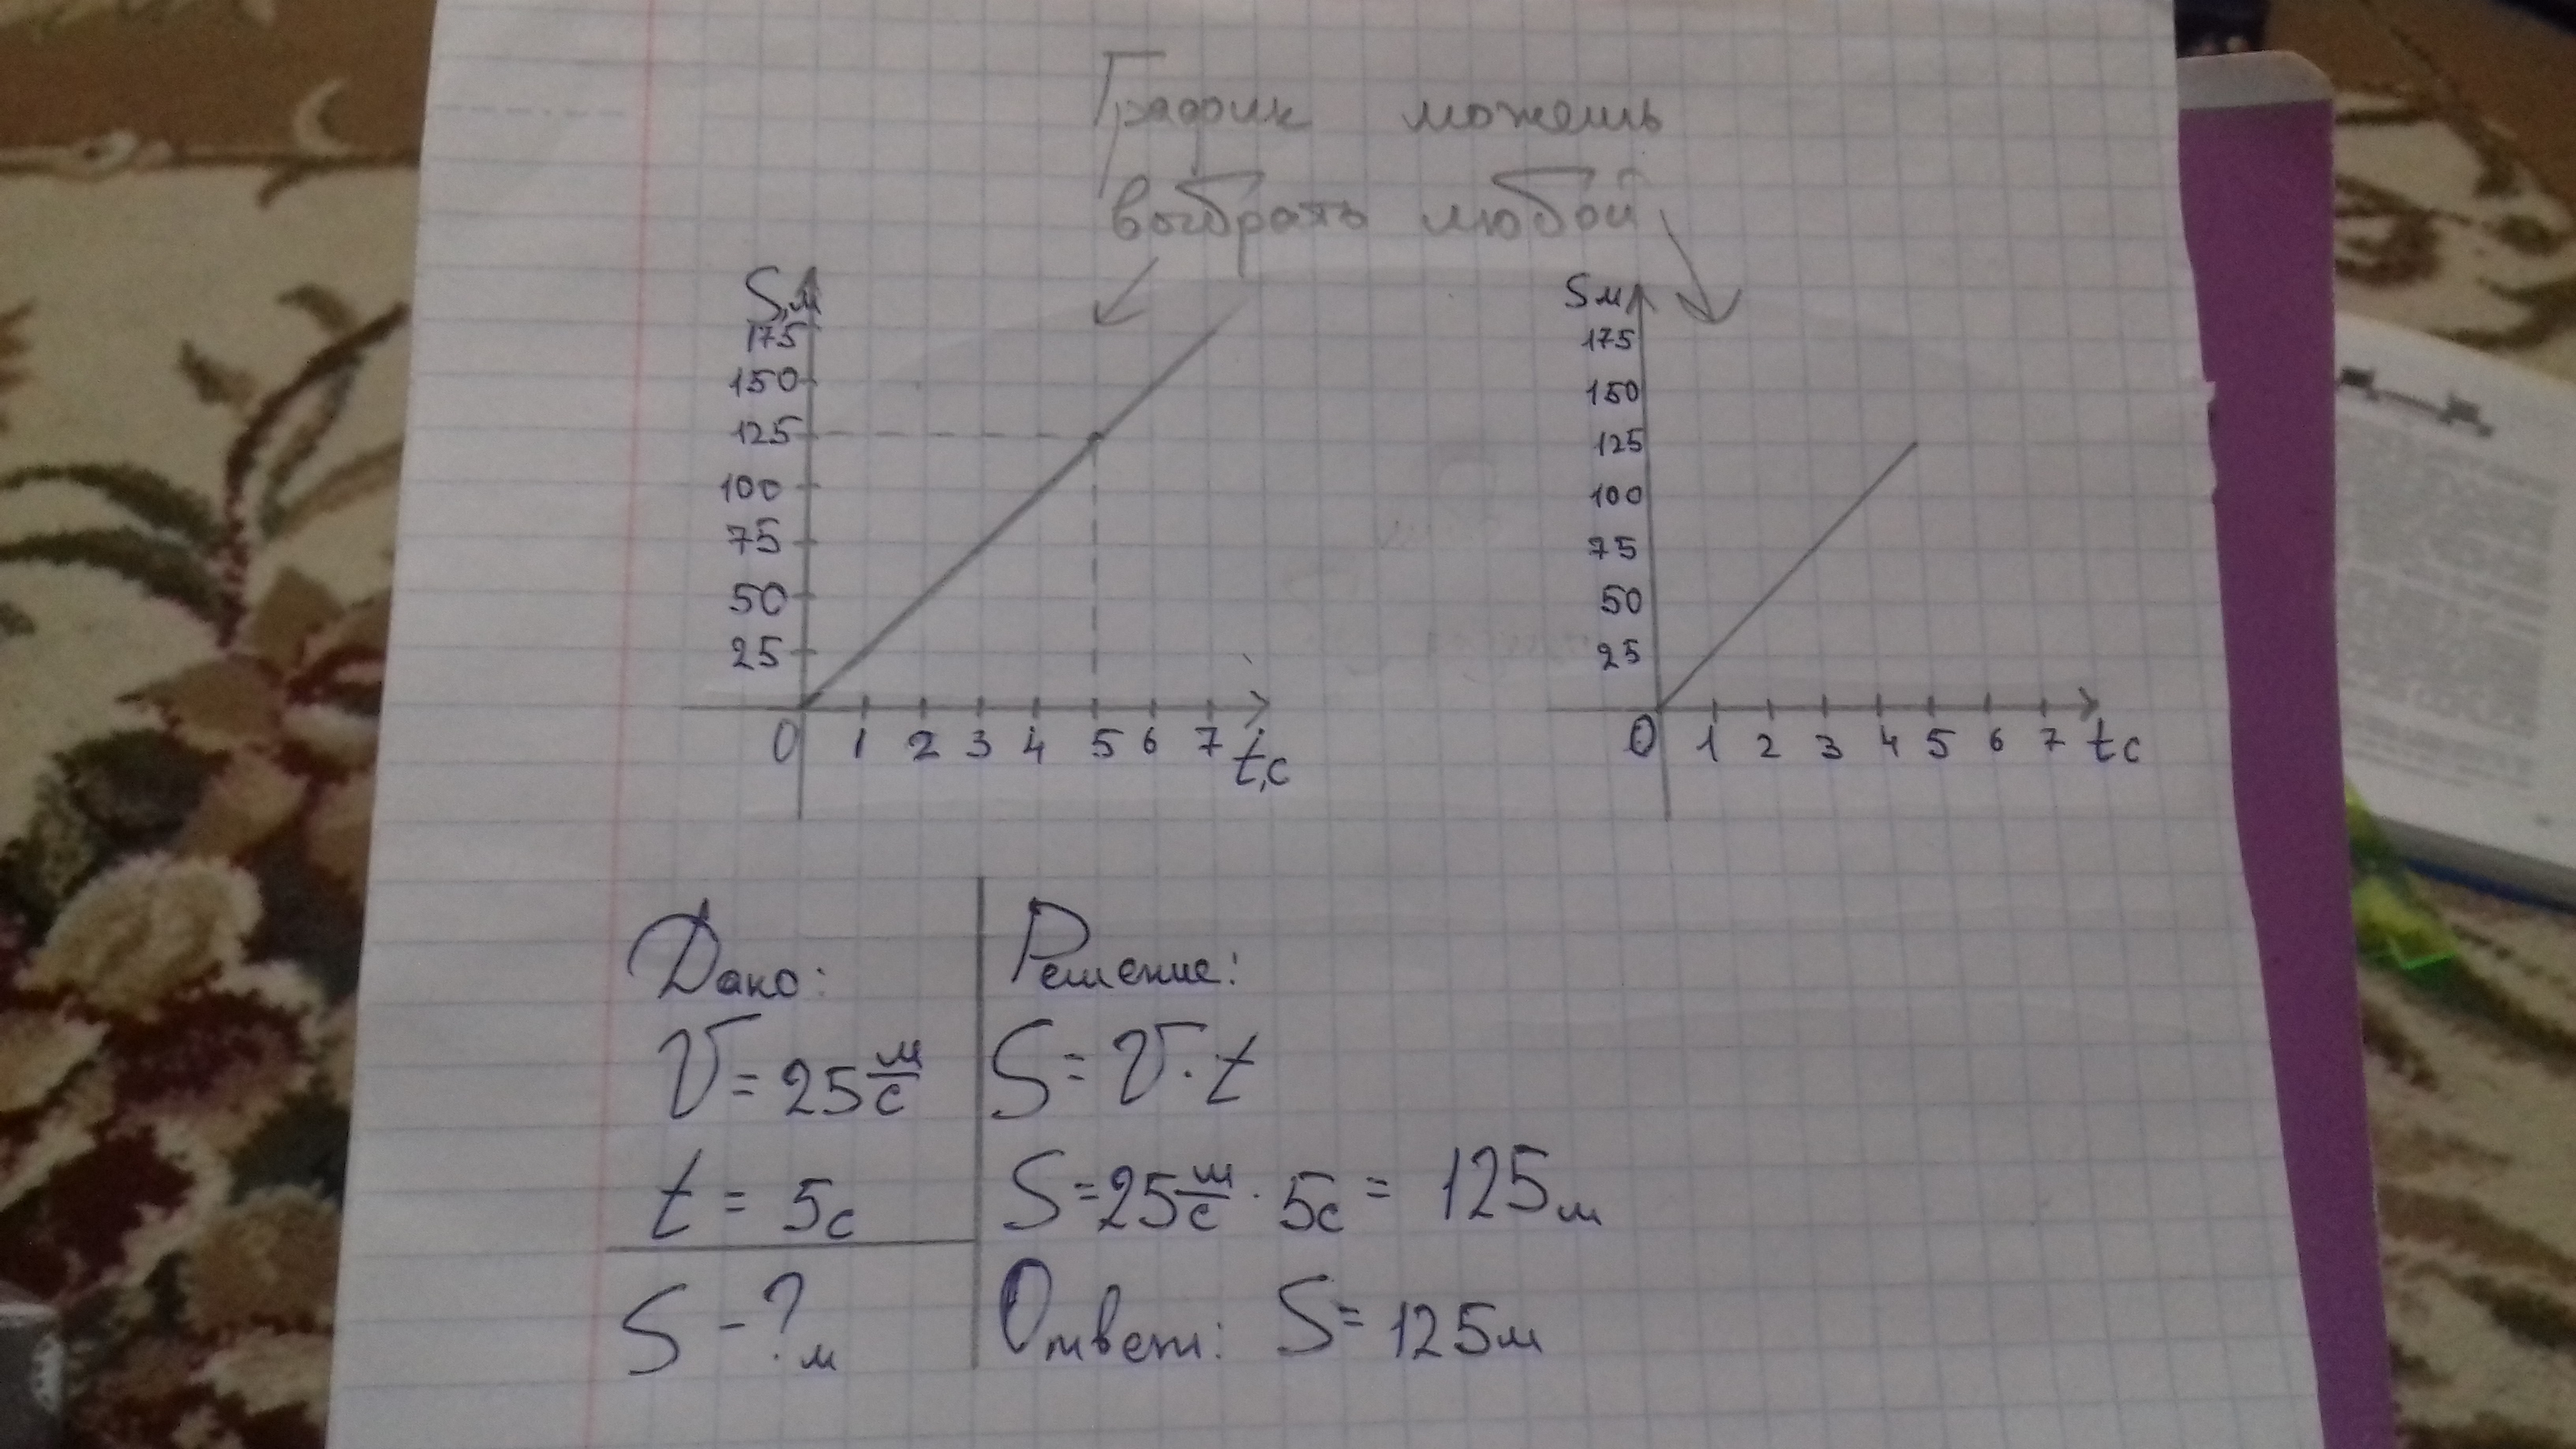 График можешь
выбрать любой
S,м
175
150
125
100
75
50
25
0 1 2 3 4 5 6 7 t,с
S м
175
150
125
100
75
50
25
0 1 2 3 4 5 6 7 t с
Дано:
V = 25 м/с
t = 5с
S - ? м
Решение:
S = V · t
S = 25 м/с · 5с = 125м
Ответ: S = 125м